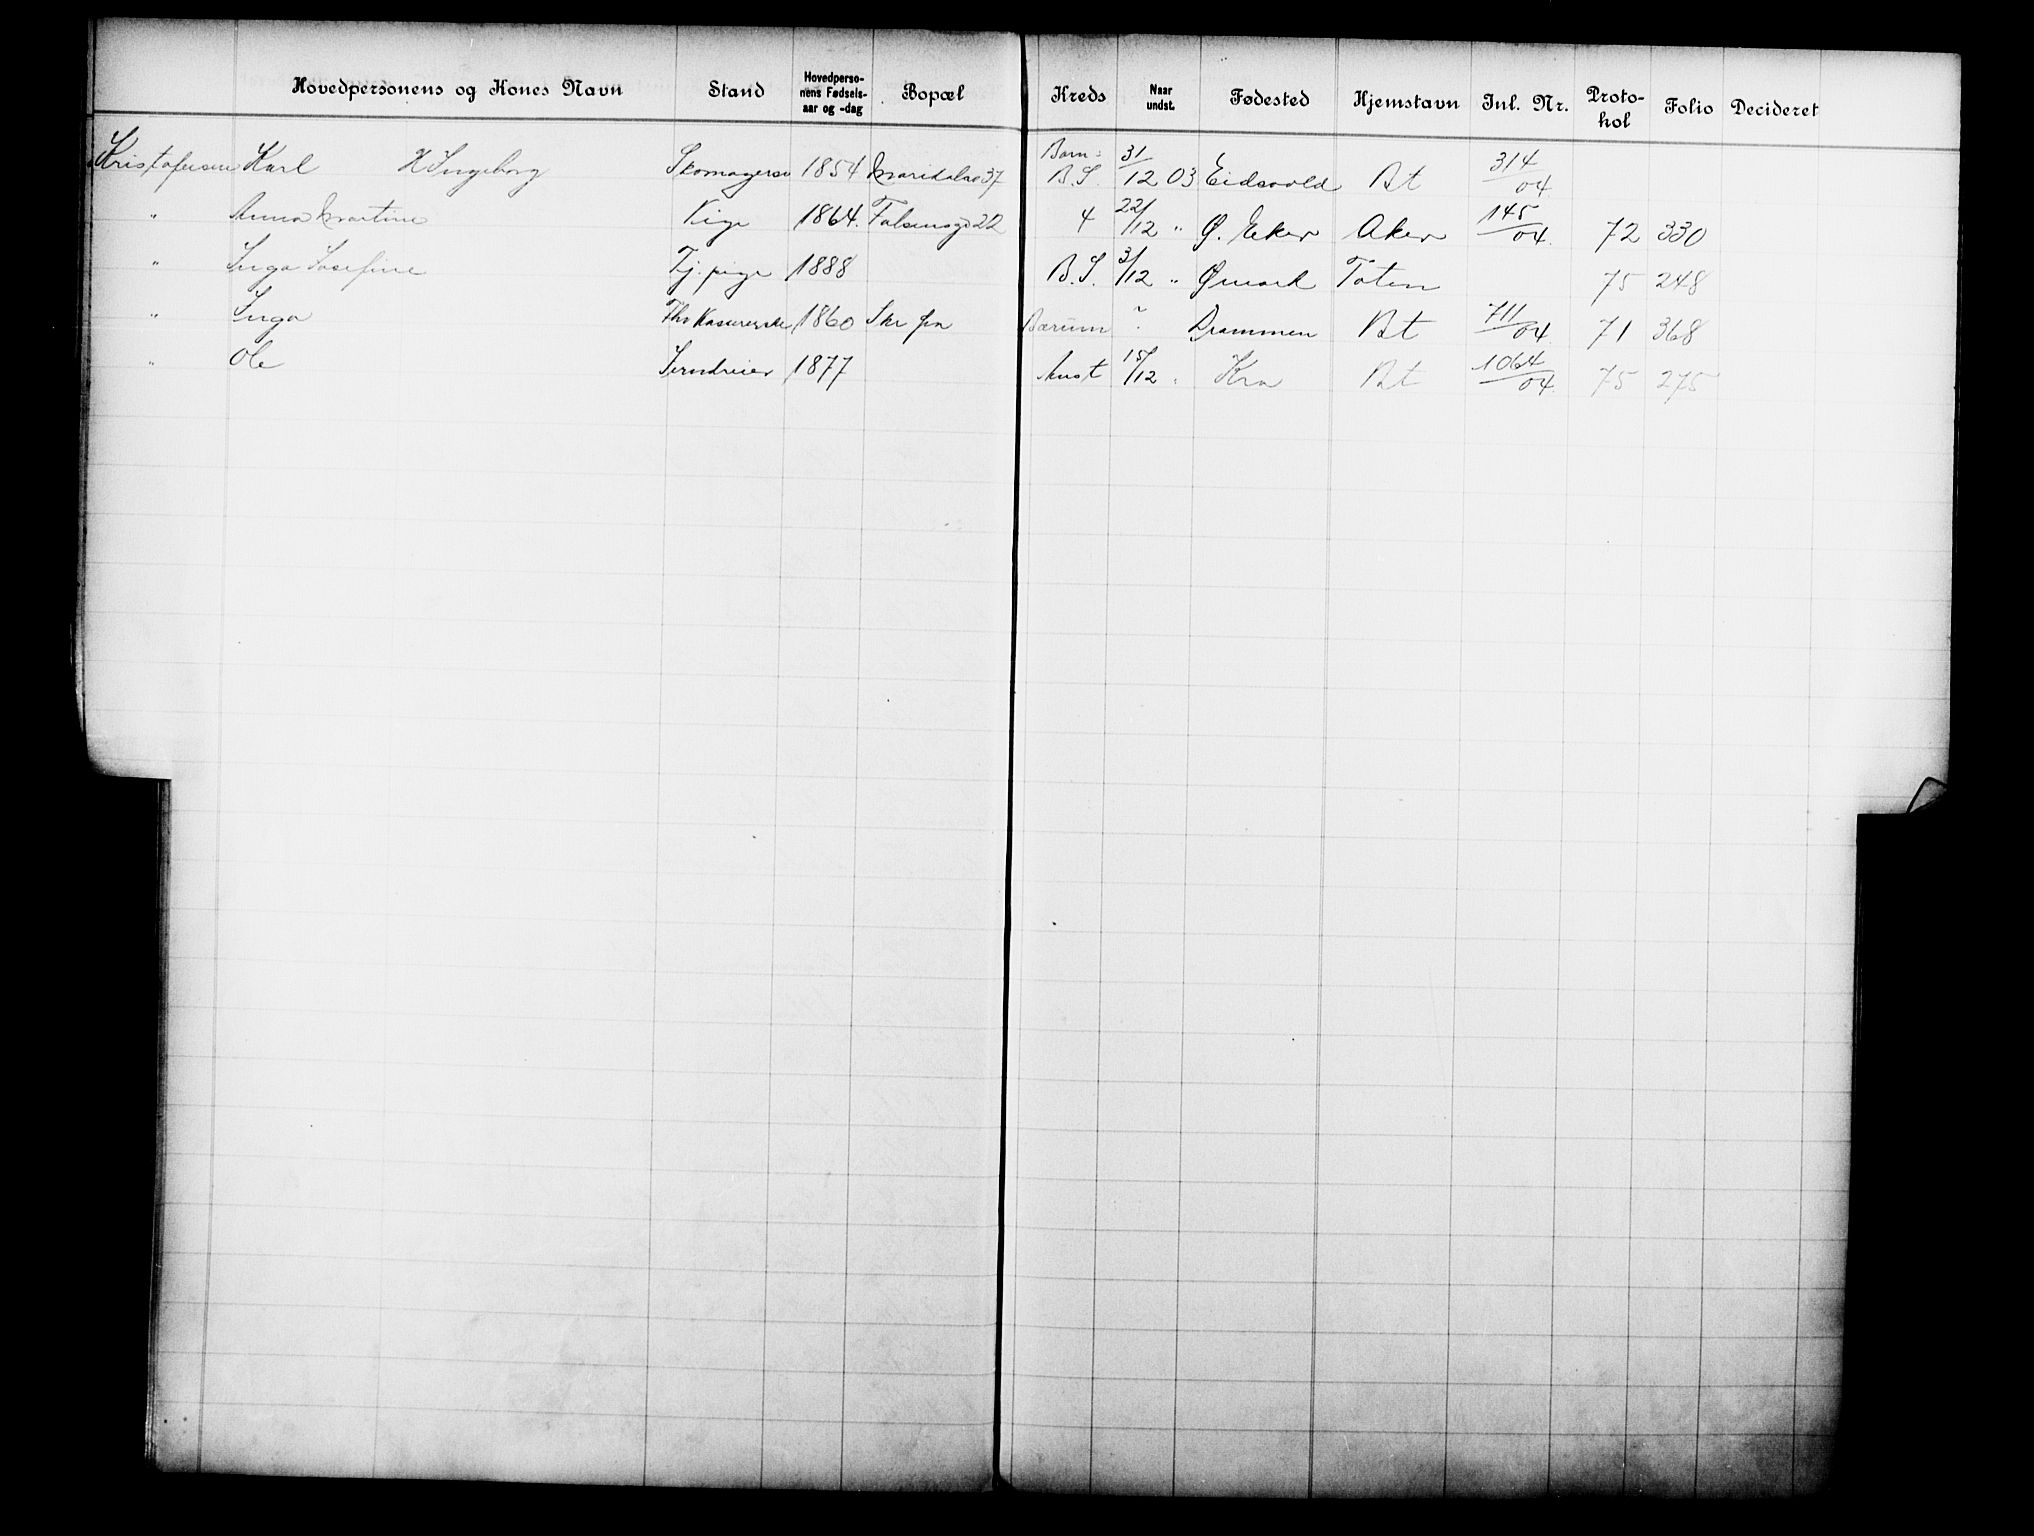 Hovedpersonens og Kones Navn Stand Hovedperso-nens Fødsels-aar og -dag Bopæl Kreds Naar undst. Fødested Hjemstavn Inl. Nr. Proto-kol Folio Decideret
Kristofersen Karl H Ingeborg Skomagersv 1854 Maridalsv 37 Barn: B.S. 31/12 03 Eidsvold Bt 314/04
" Anna Martine Pige 1864. Falsensgd 22 4 22/12 " Ø. Eker Aker 145/04. 72 330
" Inga Josefine Tj. pige 1888 B.S. 3/12 " Ømark Toten 75 248
" Inga 1860 Skr fra Bærum " Drammen Bt 711/04. 71 368
" Ole Jerndreier 1877 Anst 15/12 " Kra Bt 1064/04. 75 275